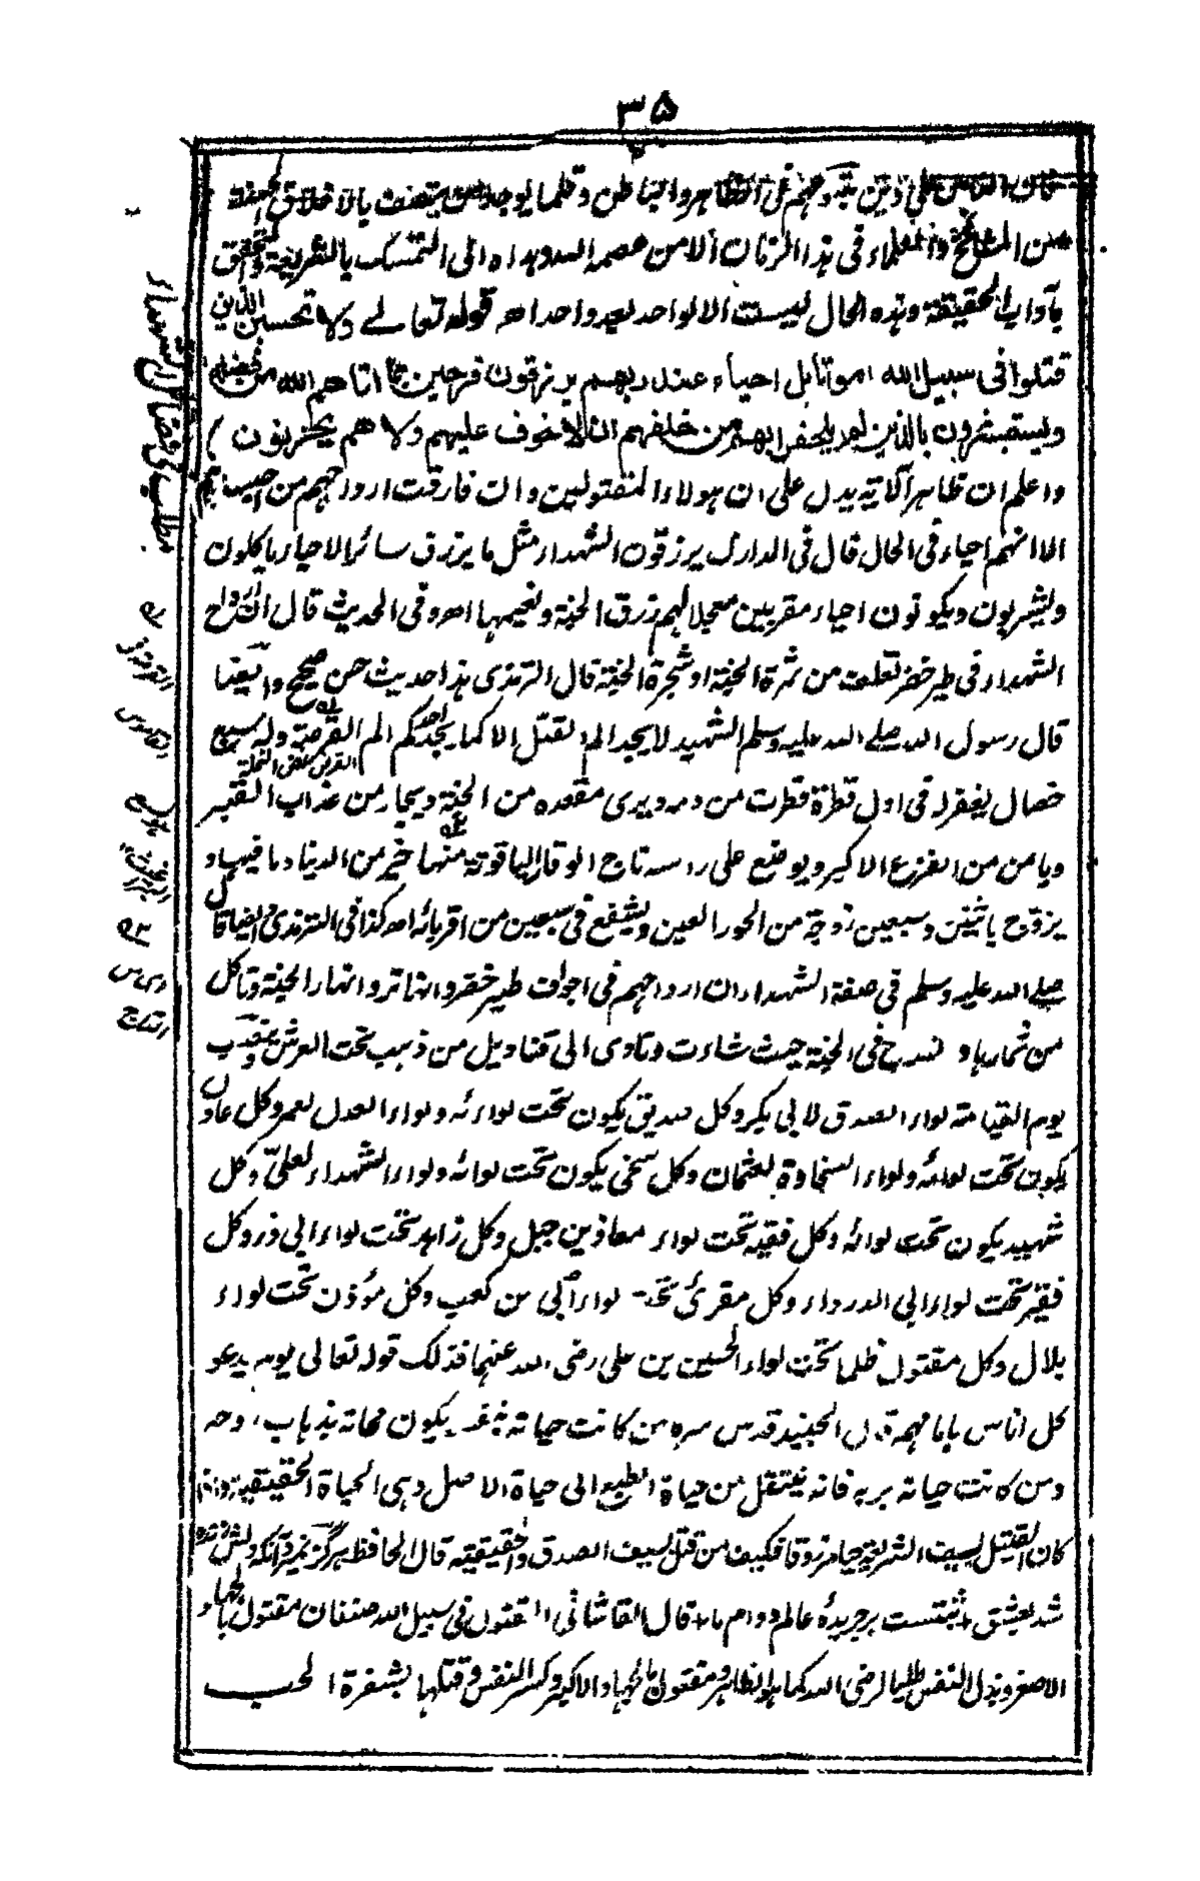 ۳۵
فان الناس على دين نبيهم في الظاهر والباطن وقلما يوجد من يتصف بالاخلاق
من المشائخ والعلماء في هذا الزمان الا من عصمه الله وهداه الى التمسك بالشريعة والتحقق
بآداب الحقيقة وهذه الحال ليست الا لواحد بعد واحد اه قوله تعالے ولا تحسبن الذين
قتلوا فى سبيل الله امواتا بل احياء عند ربهم يرزقون فرحين بما اتاهم الله من فضله
ويستبشرون بالذين لم يلحقوا بهم من خلفهم ان لا خوف عليهم ولا هم يحزنون )
واعلم ان ظاهر آلاية يدل على ان هولاء المقتولين وان فارقت ارواحهم من اجسادهم
الا انهم احياء فى الحال قال فى المدارك يرزقون الشهداء مثل ما يرزق سائر الاحياء ياكلون
ويشربون ويكونون احياء مقربين معجلا لهم رزق الجنة ونعيمها اه وفى الحديث قال ان ارواح
الشهداء فى طير خضر تعلق من ثمرة الجنة او شجرة الجنة قال الترمذى هذا حديث حسن صحيح وايضا
قال رسول الله صلے الله عليه وسلم الشهيد لا يجد الم القتل الا كما يجد احدكم الم القرصة وله سبع
خصال يغفر له فى اول قطرة قطرت من دمه ويرى مقعده من الجنة ويجار من عذاب القبر
ويامن من الفزع الاكبر ويوضع على راسه تاج الوقار الياقوتة منها خير من الدنيا وما فيها و
يزوج باثنتين وسبعين زوجة من الحور العين ويشفع فى سبعين من اقربائه اه كذا فى الترمذى وايضا قال
صلے الله عليه وسلم فى صفة الشهداء ان ارواحهم فى اجواف طير خضر وانها ترد انهار الجنة وتاكل
من ثمارها و تسرح فى الجنة حيث شاءت وتاوى الى قناديل من ذهب تحت العرش
يوم القيامة لواء الصدق لابى بكر وكل صديق يكون تحت لوائه ولواء العدل لعمر وكل عادل
يكون تحت لوائه ولواء السخاوة لعثمان وكل سخى يكون تحت لوائه ولواء الشهداء لعلىّ وكل
شهيد يكون تحت لوائه وكل فقيه تحت لواء معاذ بن جبل وكل زاهد تحت لواء ابى ذر وكل
فقير تحت لواء ابى الدرداء وكل مقرئ تحت لواء ابى بن كعب وكل مؤذن تحت لواء
بلال وكل مقتول ظلما تحت لواء الحسين بن على رضى الله عنهما فذلك قوله تعالى يوم يدعو
كل اناس بامامهم قال الجنيد قدس سره من كانت حياته بنفسه يكون مماته بذهاب روحه
ومن كانت حياته بربه فانه ينتقل من حياة الطبع الى حياة الاصل وهى الحياة الحقيقية واذا
كان القتيل بسيف الشريعة حيا مرزوقا فكيف من قتل بسيف الصدق والحقيقية قال الحافظ هرگز نميرد آنكه دلش زنده
شد بعشق + ثبتست بر جريدهٔ عالم دوام ما + قال القاشانى المقتول فى سبيل الله صنفان مقتول بالجهاد
الاصغر وبذل النفس طلبا لرضى الله كما هو الظاهر ومقتول بالجهاد الاكبر وكسر النفس وقتلها بشفرة الحب
مطلب فى فضائل الشهداء